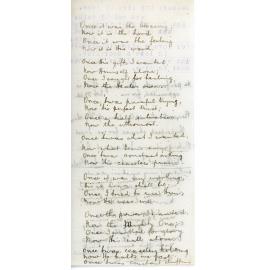 Once it was the blessing,
Now it is the Lord;
Once it was the feeling
Now it is His word.
Once His gift I wanted,
Now Himself alone;
Once I sought for healing,
Now the Healer
Once 'twas painful trying,
Now 'tis perfect trust;
Once a half salvation,
Now the uttermost.
Once 'twas what I wanted
Now what
Once 'twas constant asking
Now 'tis ceaseless praise
Once it was my
His it
Once I tried to use Him,
Now He uses me
Once the power I wanted
Now the Mighty One;
Once I
Now His all atones
Once 'twas
Now He holds me fast
Once 'twas constant drifting